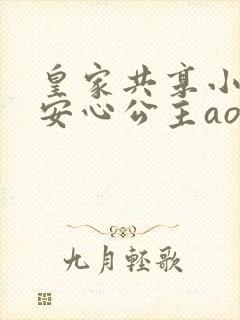 皇家共享小
安心公主ao
九月轻歌